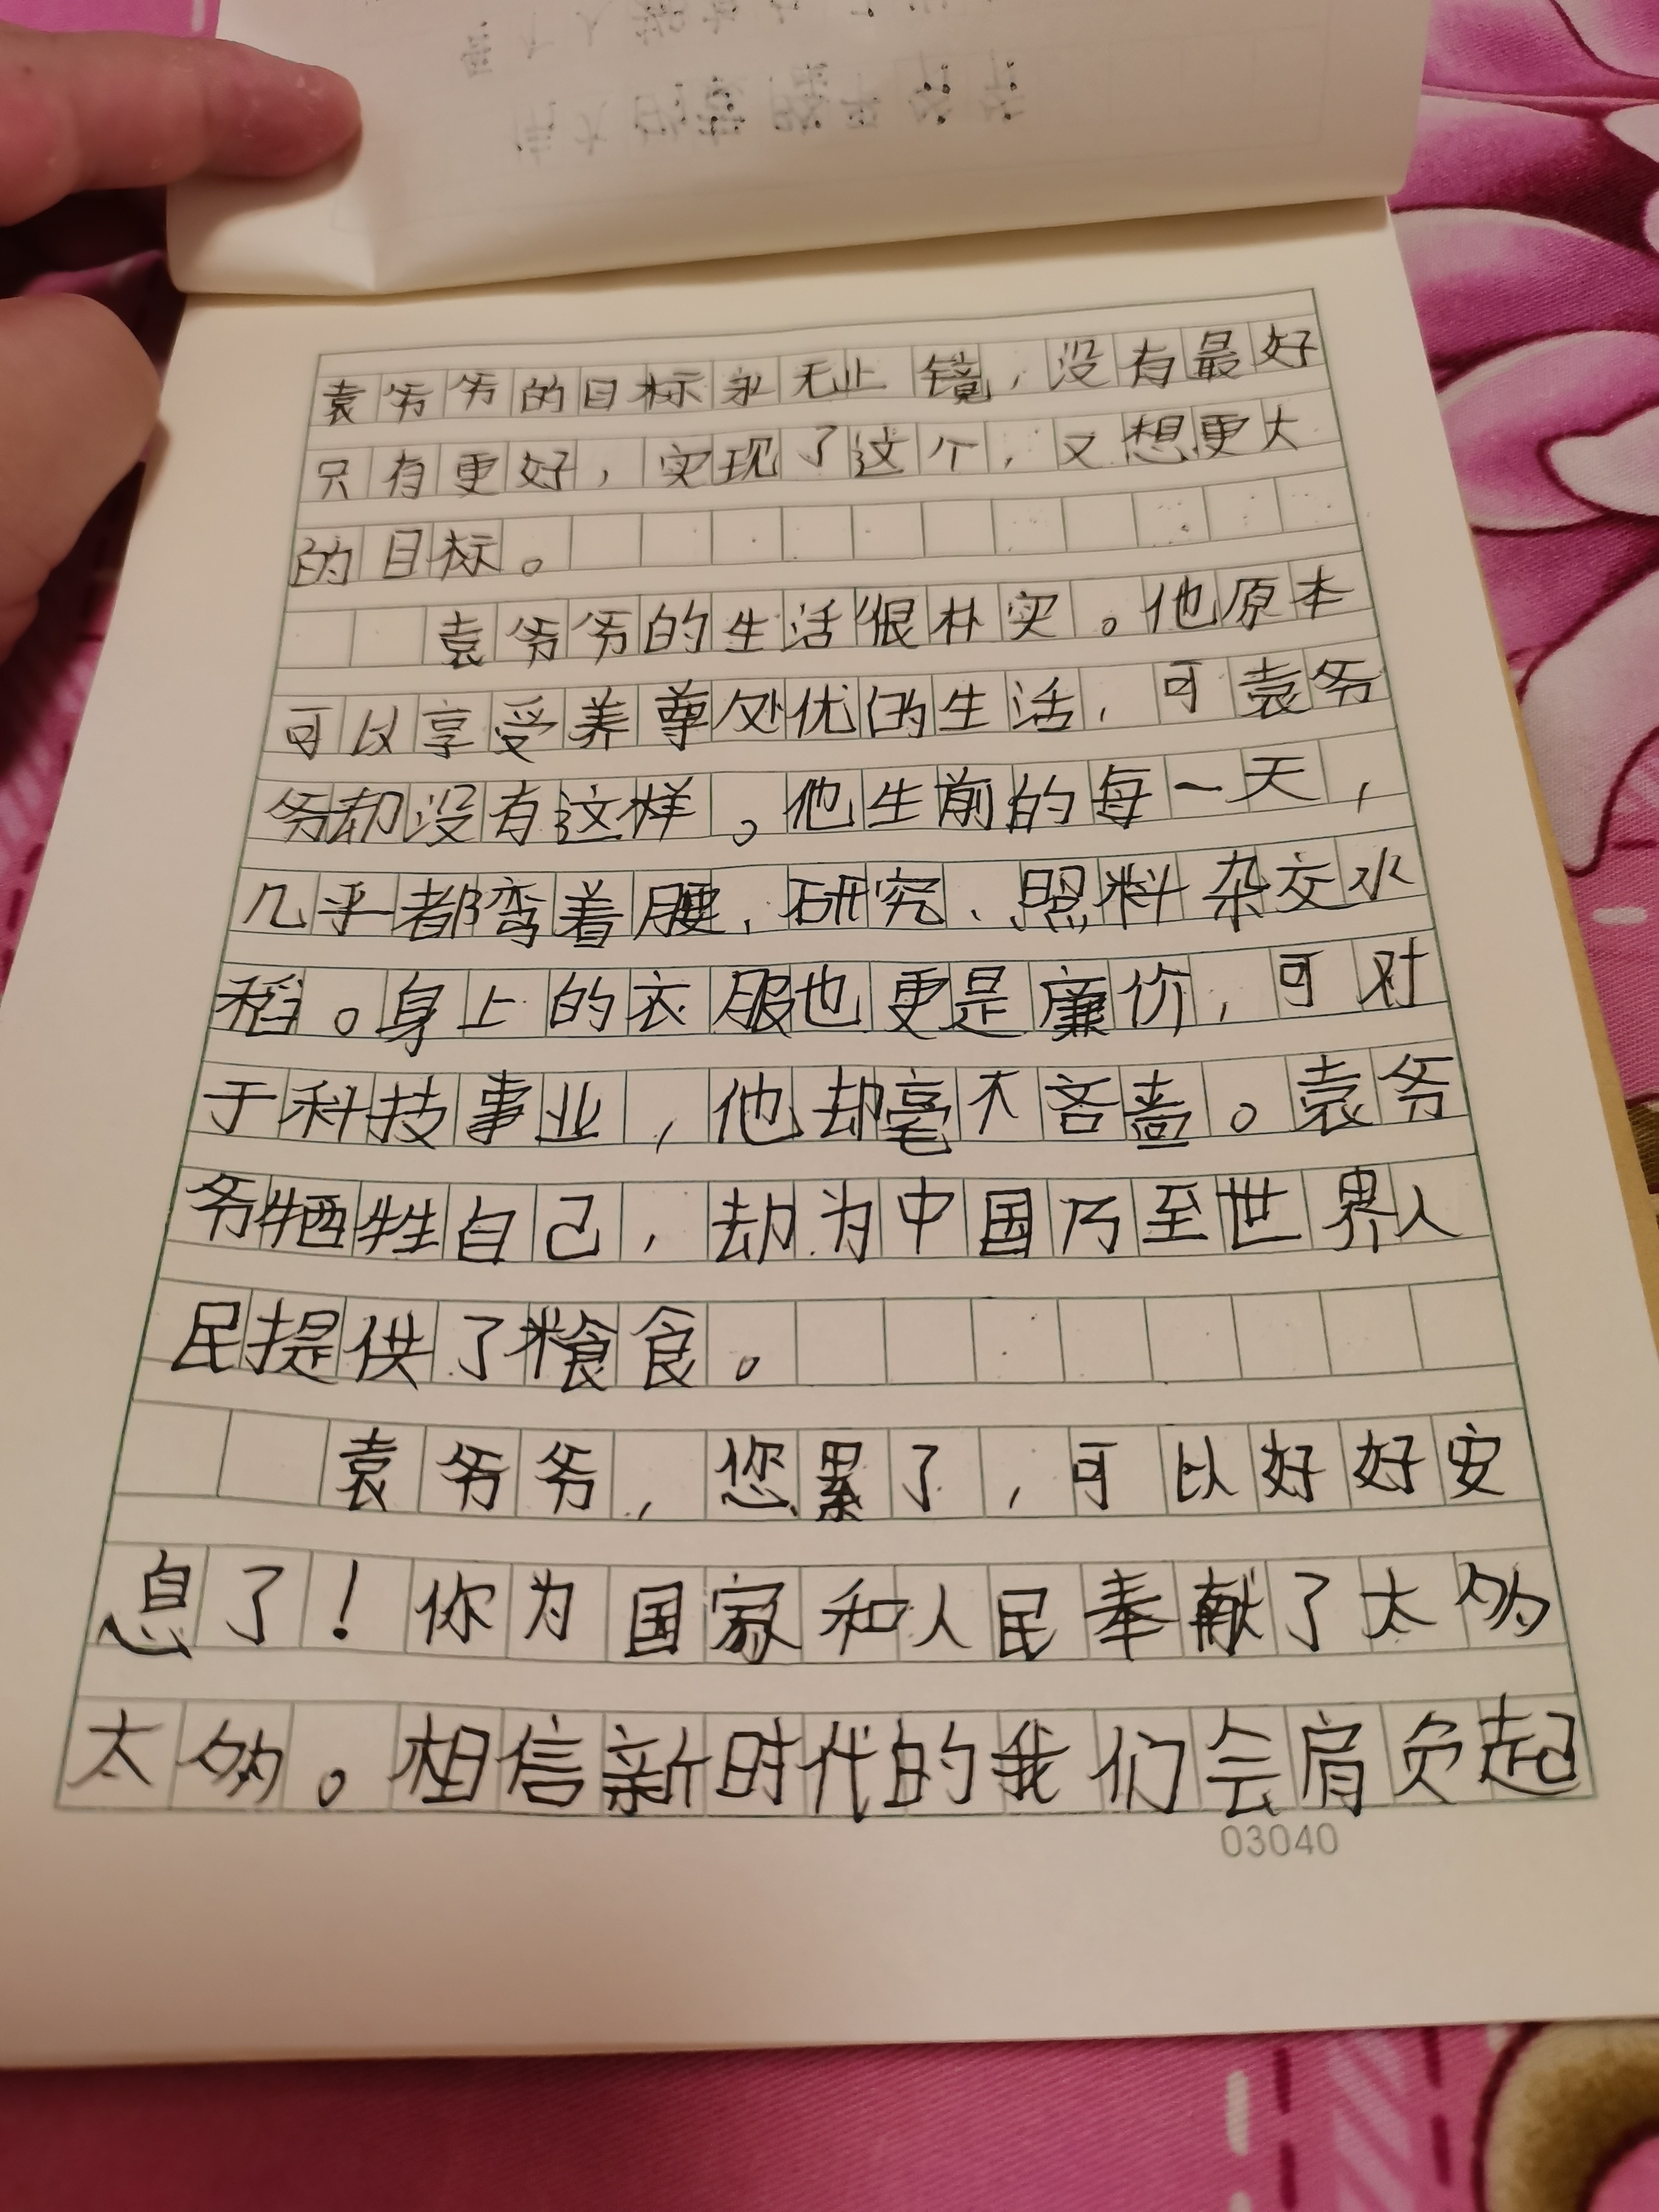 袁爷爷的目标永无止镜，没有最好
只有更好，实现了这个，又想更大
的目标。
袁爷爷的生活很朴实。他原本
可以享受养尊处优的生活，可袁爷
爷却没有这样。他生前的每一天，
几乎都弯着腰，研究、照料杂交水
稻。身上的衣服也更是廉价，可对
于科技事业，他却毫不吝啬。袁爷
爷牺牲自己，却为中国乃至世界人
民提供了粮食。
袁爷爷，您累了，可以好好安
息了！你为国家和人民奉献了太多
太多。相信新时代的我们会肩负起
03040